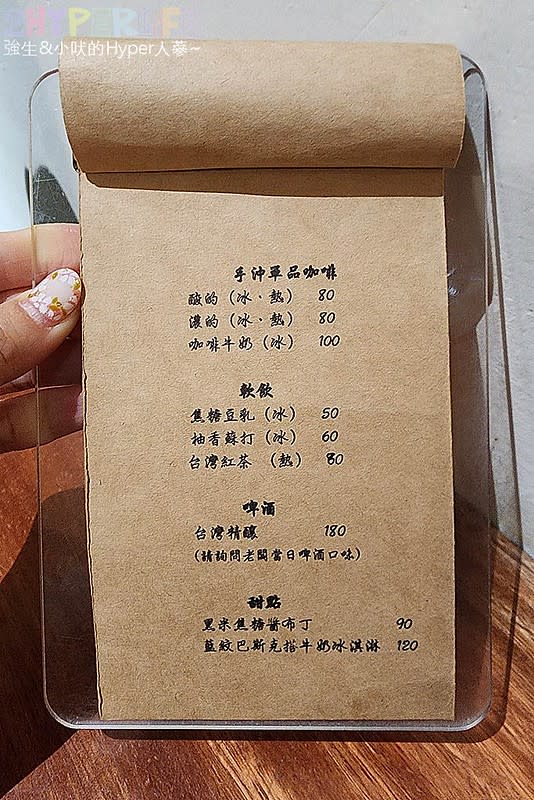 CHYPERCF
強生&小吠的Hyper人蔘~
手沖單品咖啡
酸的（冰·熱） 80
濃的（冰·熱） 80
咖啡牛奶（冰） 100
軟飲
焦糖豆乳（冰） 50
柚香蘇打（冰） 60
台灣紅茶 （熱） 80
啤酒
台灣精釀 180
（請詢問老闆當日啤酒口味）
甜點
黑米焦糖醬布丁 90
藍紋巴斯克搭牛奶冰淇淋 120